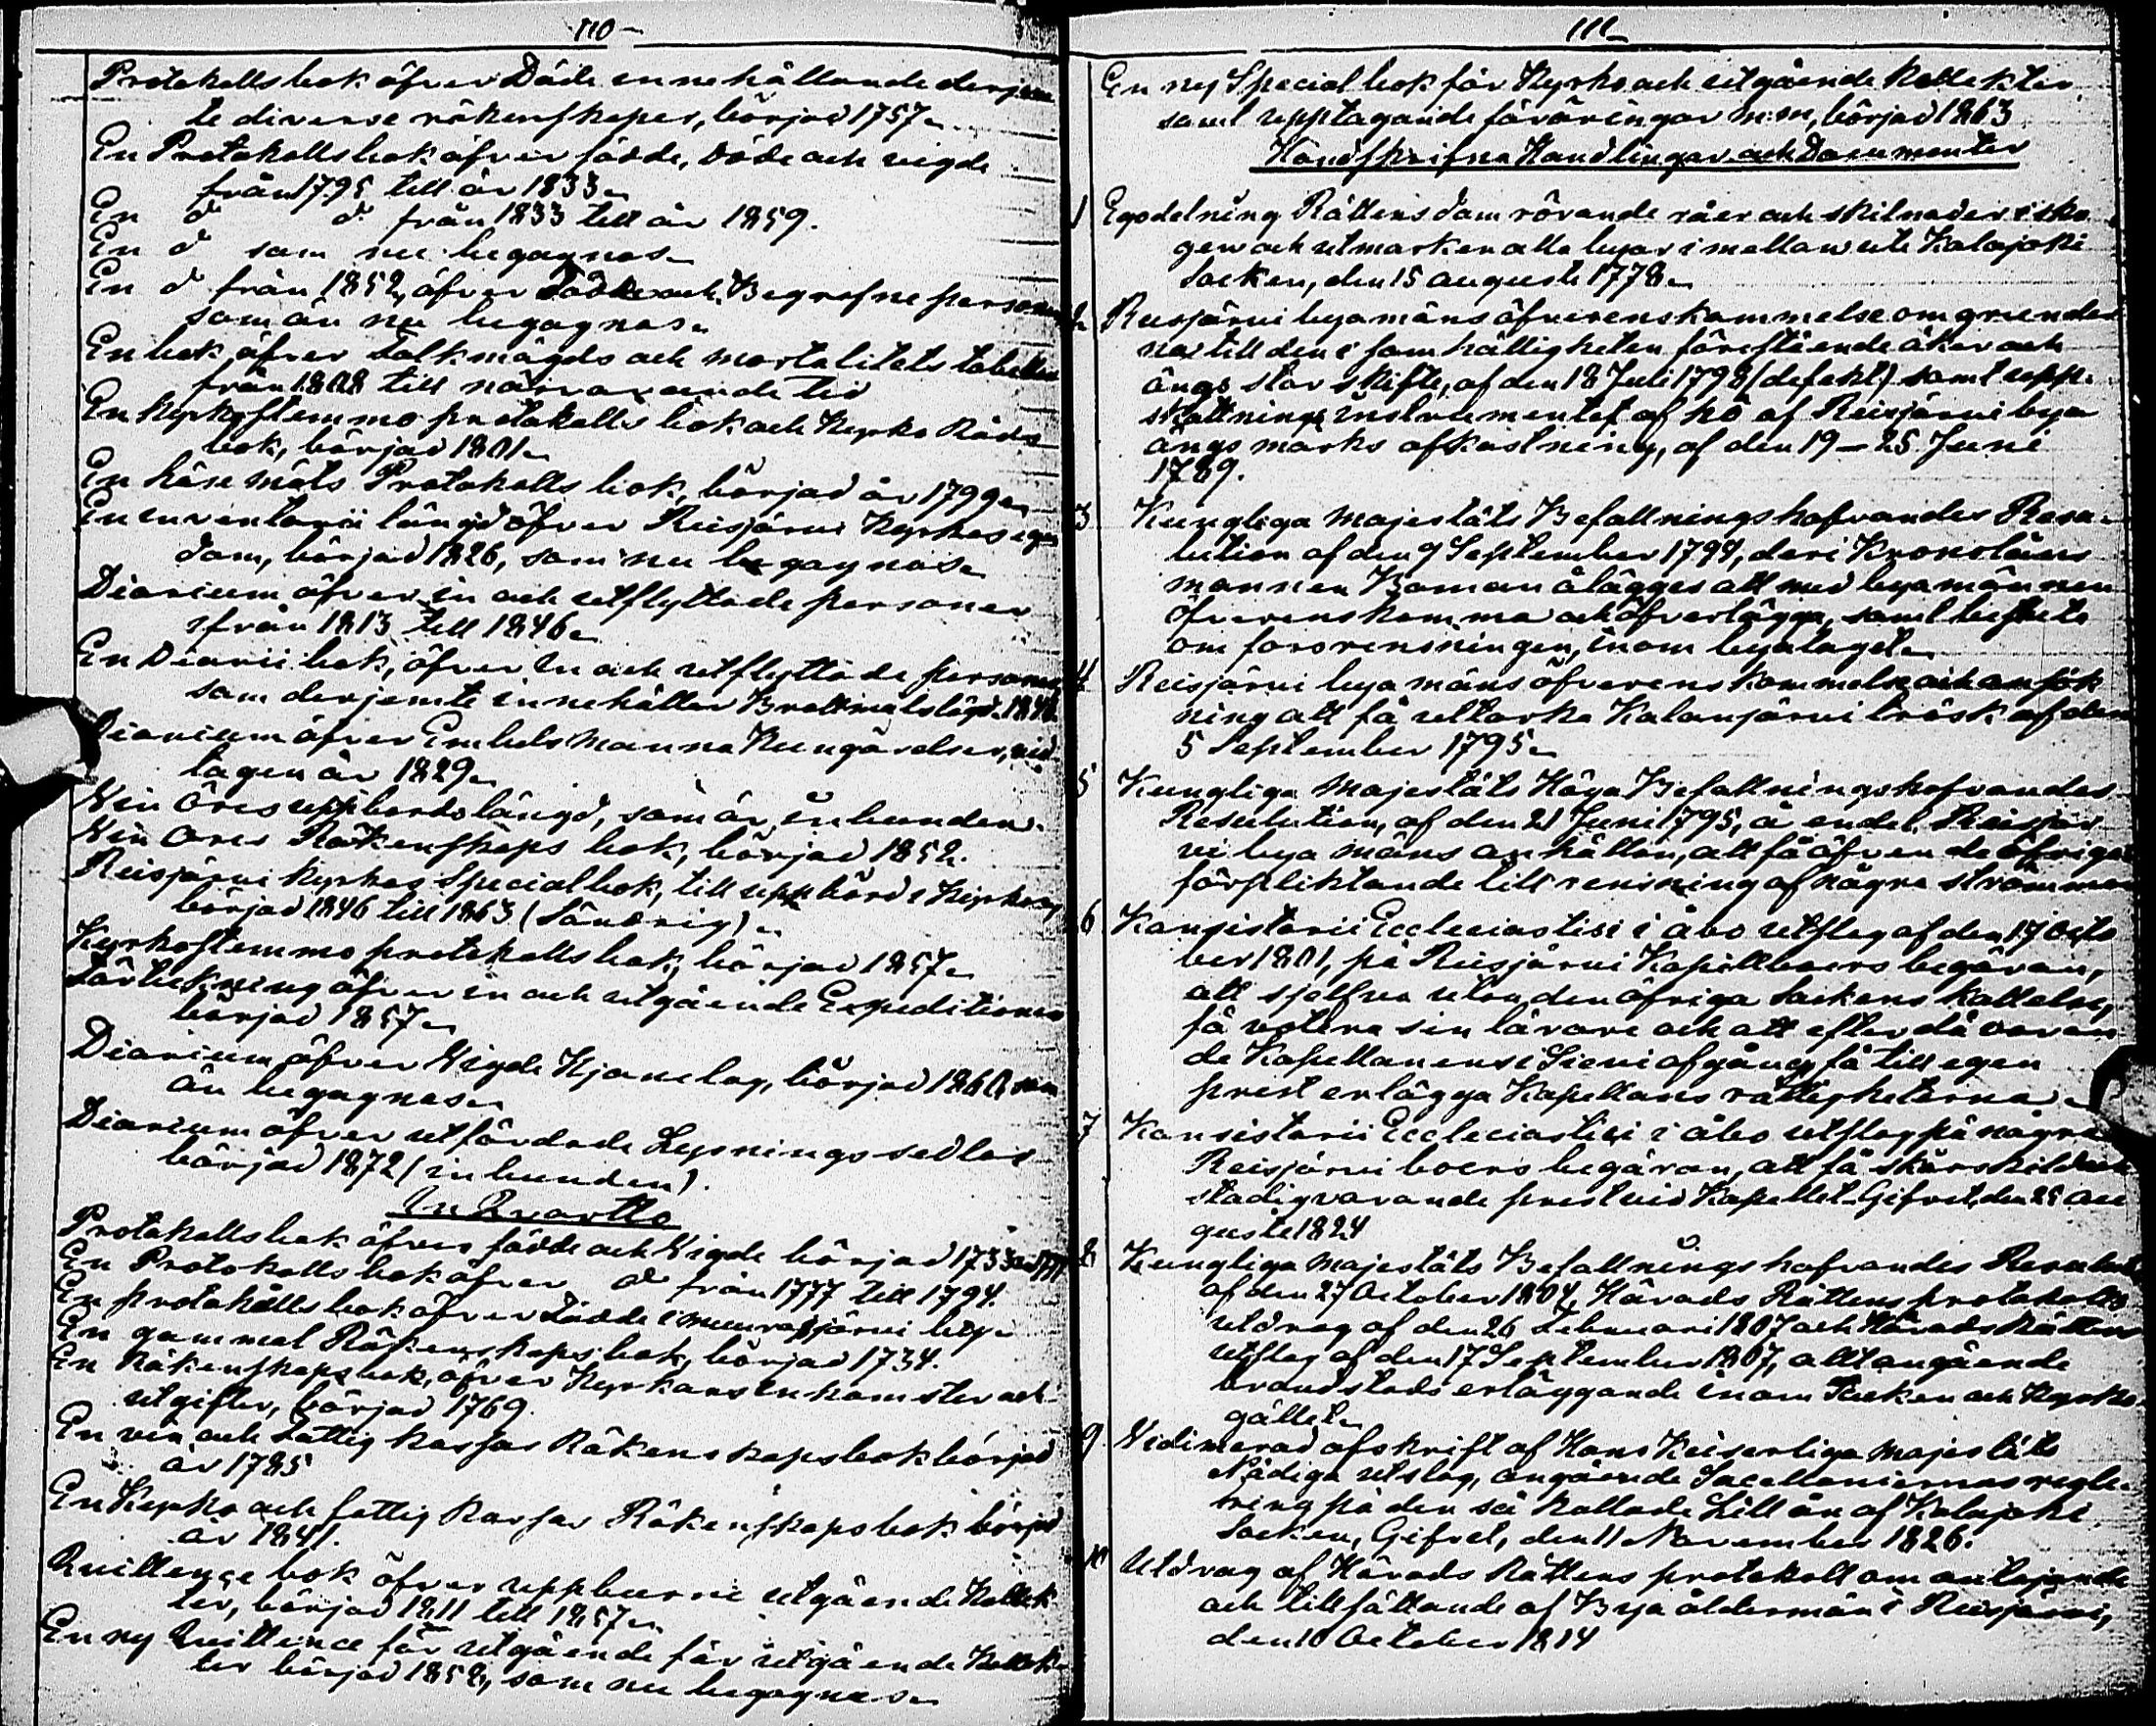 110
Protokolls bok öfver Döde innehållande derjem
te diverse räkenskaper, börjad 1757.
En Protokolls bok öfver födde, döde och vigde
från 1795 till år 1833.
En d:o d:o från 1833 till år 1859.
En d:o som nu begagnas.
En d:o från 1852, öfver Födde och Begrafne personer
som än nu begagnas.
En bok öfver Folkmägds och mortalitets tabeller
från 1808 till närvarande tid
En Kyrkostemmo protokolls bok och Kyrko Råds
bok, börjad 1801.
En hånemåls Protokolls bok, börjad år 1799.
En inventarii längd öfver Reisjärvi Kyrkas egen
dom, börjad 1826, som nu begagnas.
Diarium öfver in och utflyttade personer
ifrån 1813 till 1846.
En Diarii bok, öfver in och utflyttade personer
som derjemte innehåller Brottmåls längd. 1846
Diarium öfver Embetsmanna Kungörelser, vid
tagen år 1829.
Vin öres uppbördslängd, som är inbunden.
Vin öres Räkenskaps bok, börjad 1852.
Reisjärvi kyrkas Special bok, till uppbörd i Kyrkan
börjad 1846 till 1863 (Söndrig).
Kyrkostemmo protokolls bok, börjad 1857.
Förteckning öfver in och utgående Expeditioner
börjad 1857.
Diarium öfver Vigde Hjonelag, börjad 1860 som
än begagnas.
Diarium öfver utfärdade Lysnings sedlar
börjad 1872 (inbunden).
In Qvartto
Protokolls bok öfver födde och Vigde börjad 1733
En Protokolls bok öfver d:o från 1777 till 1794.
En protokolls bok öfver Födde i muurasjärvi by.
En gammal Räkenskaps bok, börjad 1734.
En Räkenskaps bok, öfver Kyrkans inkomster och
utgifter, börjad 1769
En vin och Fattig kassas Räkenskapsbok börjad
år 1785
En Kyrko och fattig kassas Räkenskapsbok börjad
år 1841.
Quittence bok öfver uppburne utgående Kollek
ter, börjad 1811 till 1857.
En ny Quittence för utgående för utgående Kollek
ter börjad 1852, som nu begagnas.
111
En ny Special bok för Kyrko och utgående Kollekter
samt upptagande föräringar m:m, börjad 1863
Handskrifna Handlingar och Documenter
1 Egodelning Rättens dom rörande råer och skilnader i sko
gen och utmarken alla byar i mellan uti Kalajoki
Socken, den 15 augusti 1778.
2 Reisjärvi byamäns öfverenskommelse om grunder
na till den i samhälligheten föreslående åker och
ängs stor skifte, af den 18 Juli 1798 (defekt) samt upp
skattnings instrumentet af hö af Reisjärvi bya
ängs marks afkastning, af den 19–25 Juni
1789.
3 Kungliga Majestäts Befallnings hafvandes Reso
lution af den 9 September 1794, deri Kronoläns
mannen Boman ålägges att med byamännen
öfverenskomma och öfverlägga, samt besluta
om forsrensningen, inom byalaget.
4 Reisjärvi bya mäns öfverenskommelse och ansök
ning att få uttorka Kalanjärvi träsk af den
5 September 1795.
5 Kungliga Majestäts Höga Befallningshafvandes
Resulution, af den 21 Juni 1795, å en del Reisjär
vi bya mäns anhållan, att få öfven de öfriga
förpliktande till rensning af några strömmar
6 Konsistorii Ecclesiastici i åbo utslag af den 17 Octo
ber 1801, på Reisjärvi Kapellboers begäran,
att sjelfva utan den öfriga Sockens kallelse,
få votera sin lärare och att efter då varan
de Kapellanens i Sievi afgång få till egen
prest erlägga Kapellans rättigheterna.
7 Konsistorii Ecclesiastici i åbo utslag på några
Reisjärvi boers begäran, att få särskildt
stadigvarande prest vid Kapellet. Gifvet, den 25 au
gusti 1824
8 Kungliga majestäts Befallnings hafvandes Resolution
af den 27 October 1804, Härads Rättens protokolls
utdrag af den 26 Februari 1807 och Härads Rättens
utslag af den 17 September 1807, allt angående
brandstods erläggande inom Socken och Kyrko
gället.
9 Vidimerad afskrift af Hans Keiserliga Majestäts
Nådiga utslag, angående Sacellaniernas regle
ring på den så kallade Lill ån af Kalajoki
Socken, Gifvet, den 11 November 1826.
10 Utdrag af Härads Rättens protokoll om antagande
och tillsättande af Bya åldermän i Reisjärvi,
den 10 October 1814